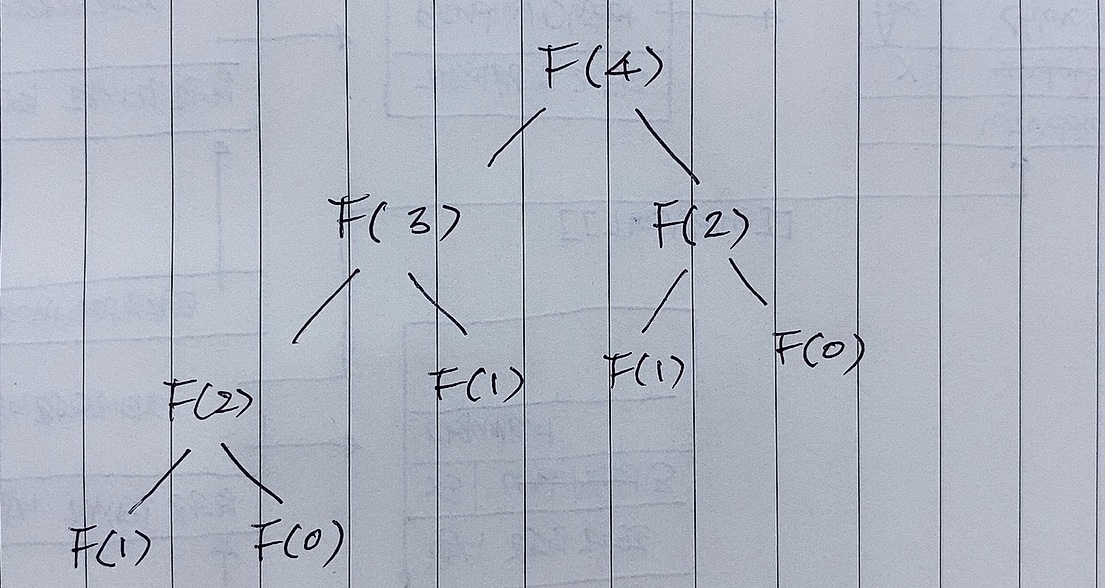 F(4)
F(3) F(2)
F(2) F(1) F(1) F(0)
F(1) F(0)